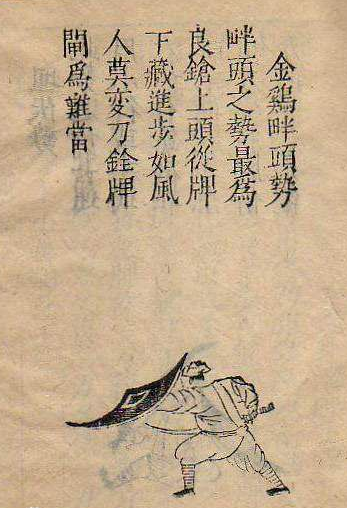 金鷄畔頭勢
畔頭之勢最爲
良鎗上頭從牌
下藏進步如風
人莫变刀銓牌
閘爲難當